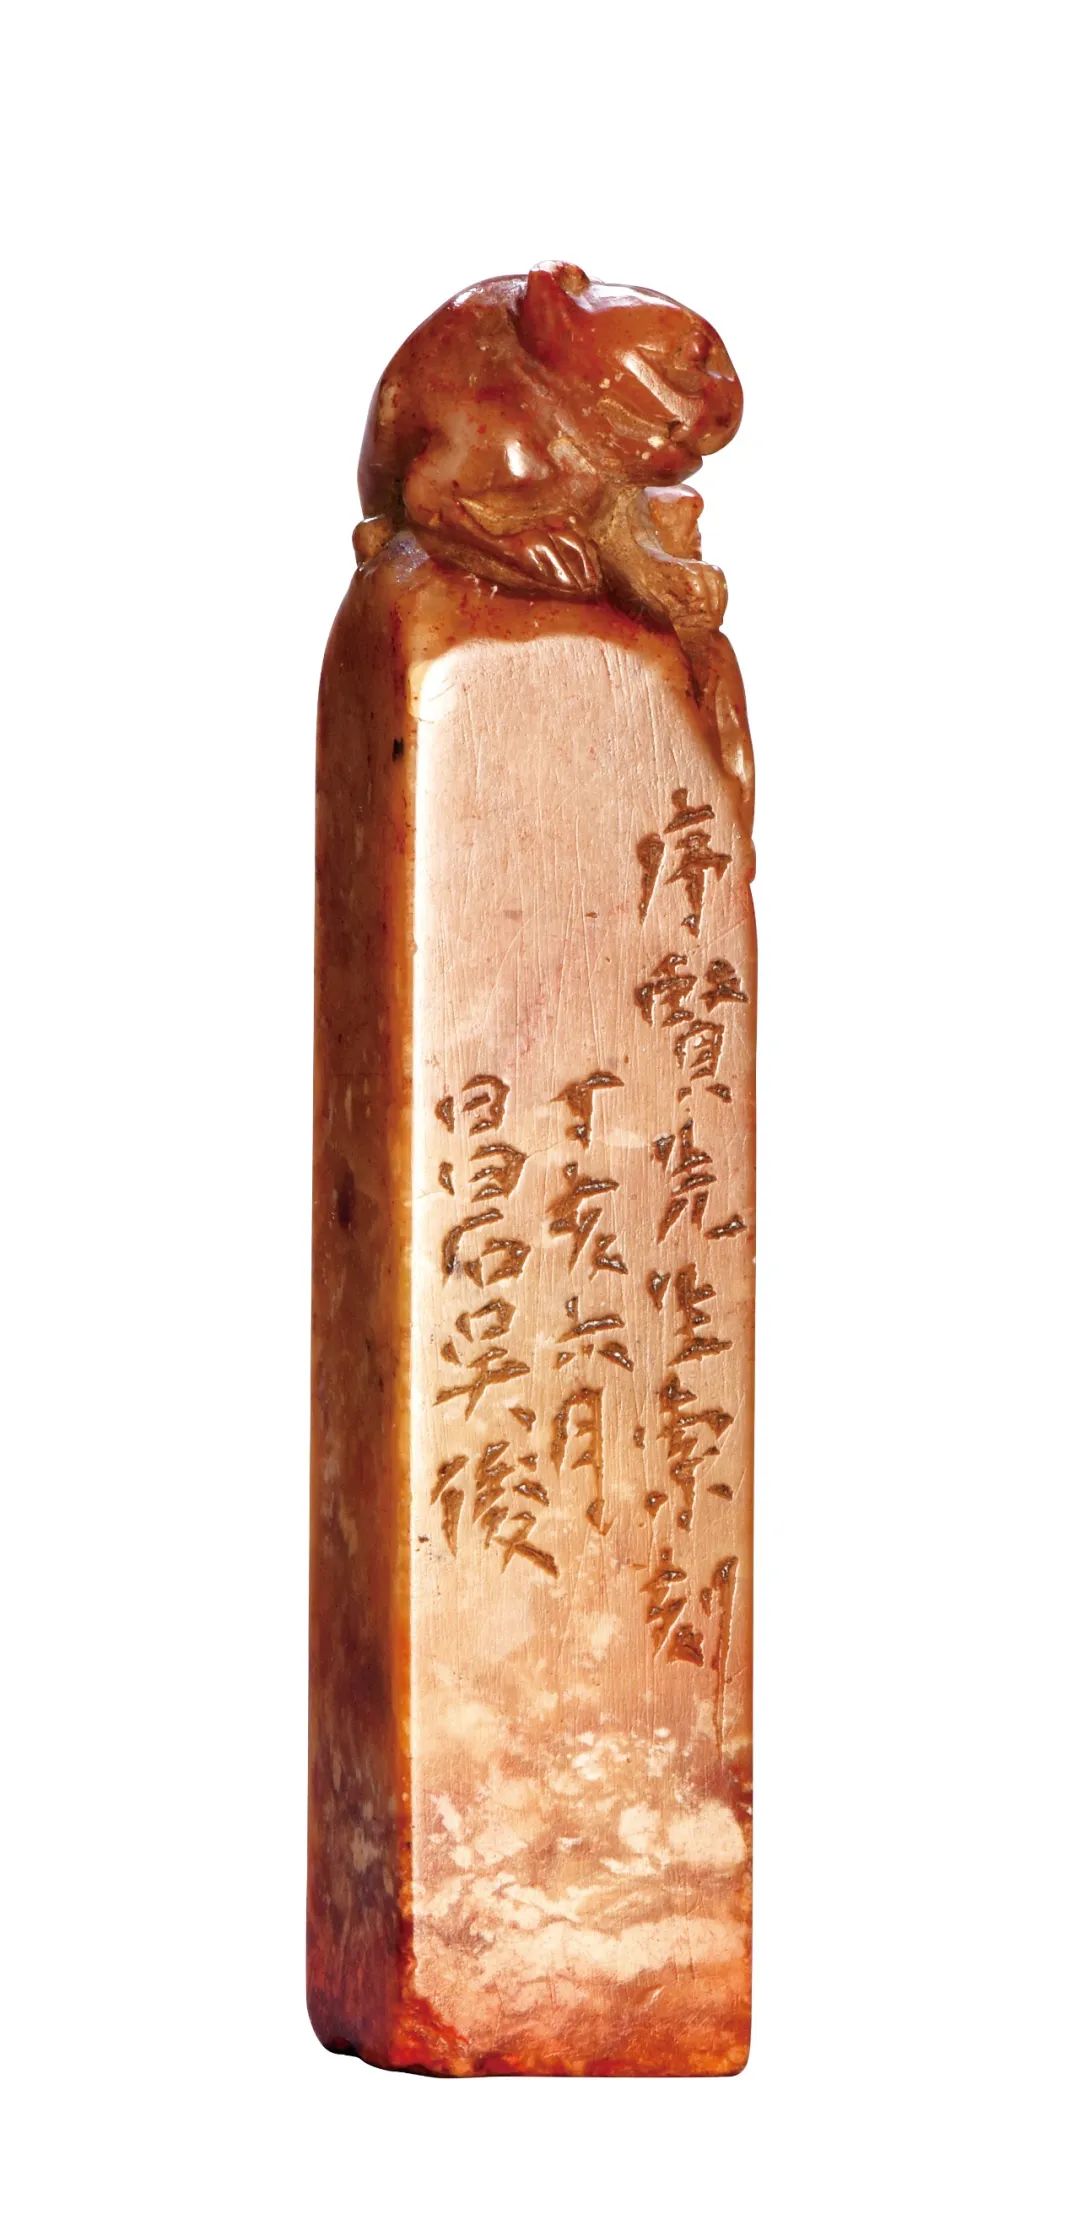 序賢先生索刻
丁亥六月
昌石吳俊